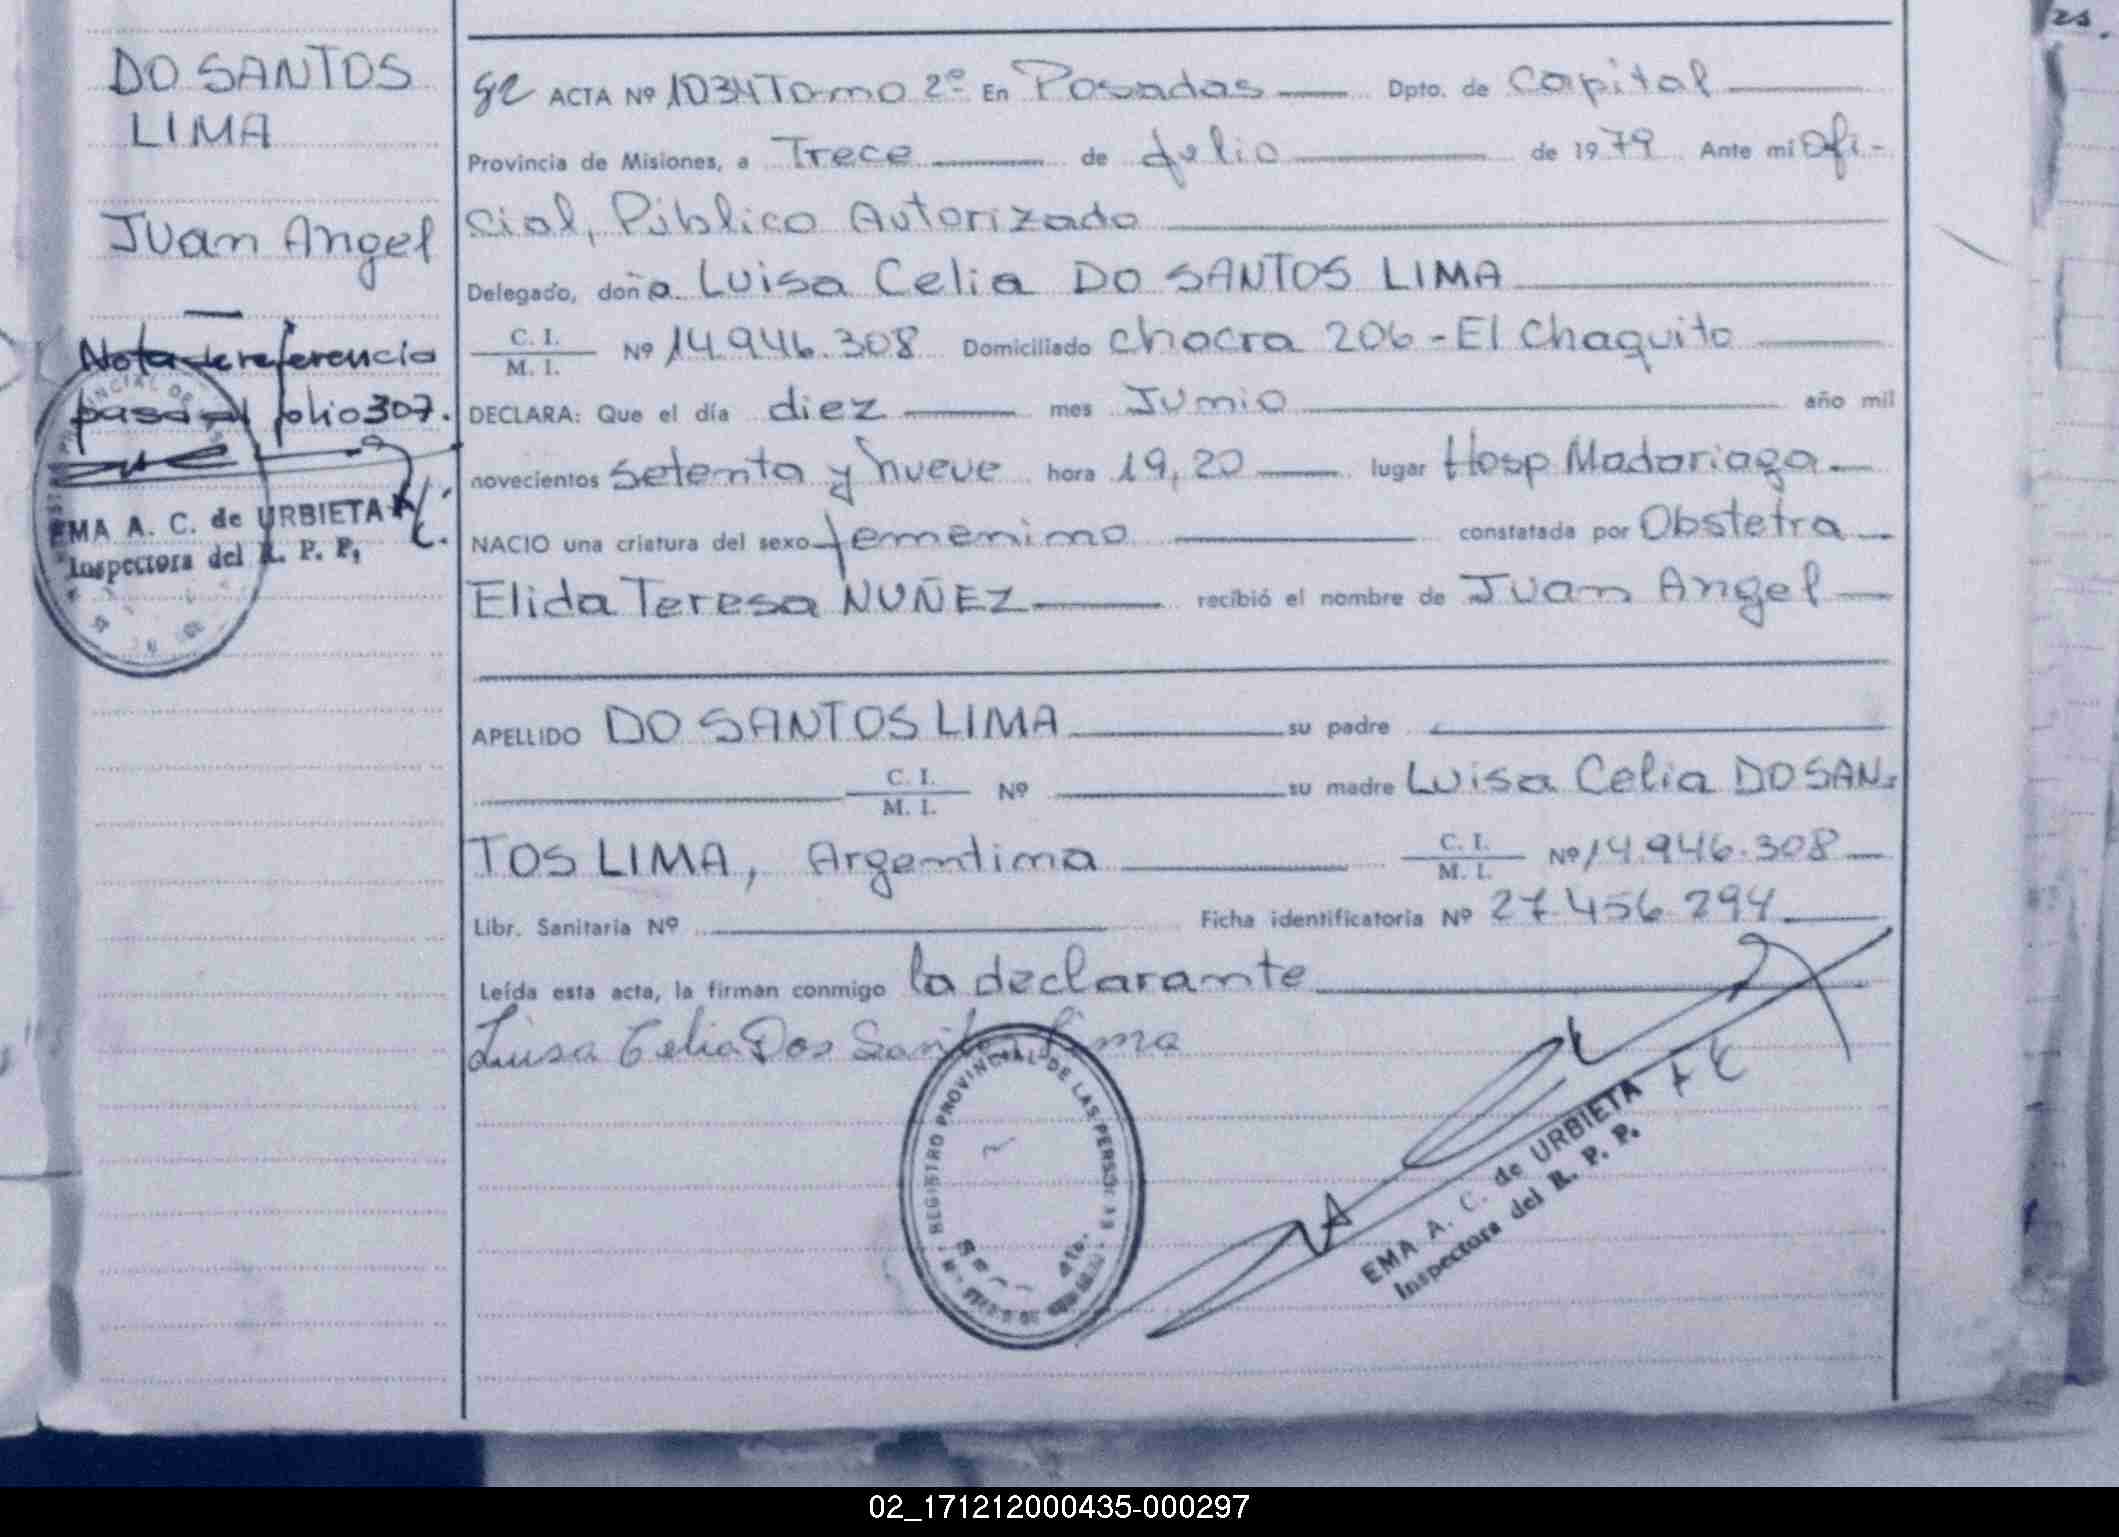 DO SANTOS
LIMA
Juan Angel
Nota de referencia
pasa al folio 307.
EMA A. C. de URBIETA
Inspectora del R. P. P,
ACTA Nº 1034 Tomo 2º En Posadas Dpto. de Capital
Provincia de Misiones, a Trece de Julio de 1979 Ante mi Ofi-
cial, Público Autorizado
Delegado, doña Luisa Celia DO SANTOS LIMA
C. I.
M. I.
Nº 14.946.308 Domiciliado chacra 206 - El Chaquito
DECLARA: Que el día diez mes Junio año mil
novecientos setenta y nueve hora 19,20 lugar Hosp Madariaga
NACIO una criatura del sexo femenino constatada por Obstetra
Elida Teresa NUÑEZ recibió el nombre de Juan Angel
APELLIDO DO SANTOS LIMA su padre
C. I.
M. I.
Nº su madre Luisa Celia DO SAN-
TOS LIMA, Argentina C. I.
M. I.
Nº 14.946.308
Libr. Sanitaria Nº Ficha identificatoria Nº 27.456.294
Leída esta acta, la firman conmigo la declarante
Luisa Celia Dos Santos Lima
REGISTRO PROVINCIAL DE LAS PERSONAS
EMA A. C. de URBIETA
Inspectora del R. P. P.
02_171212000435-000297